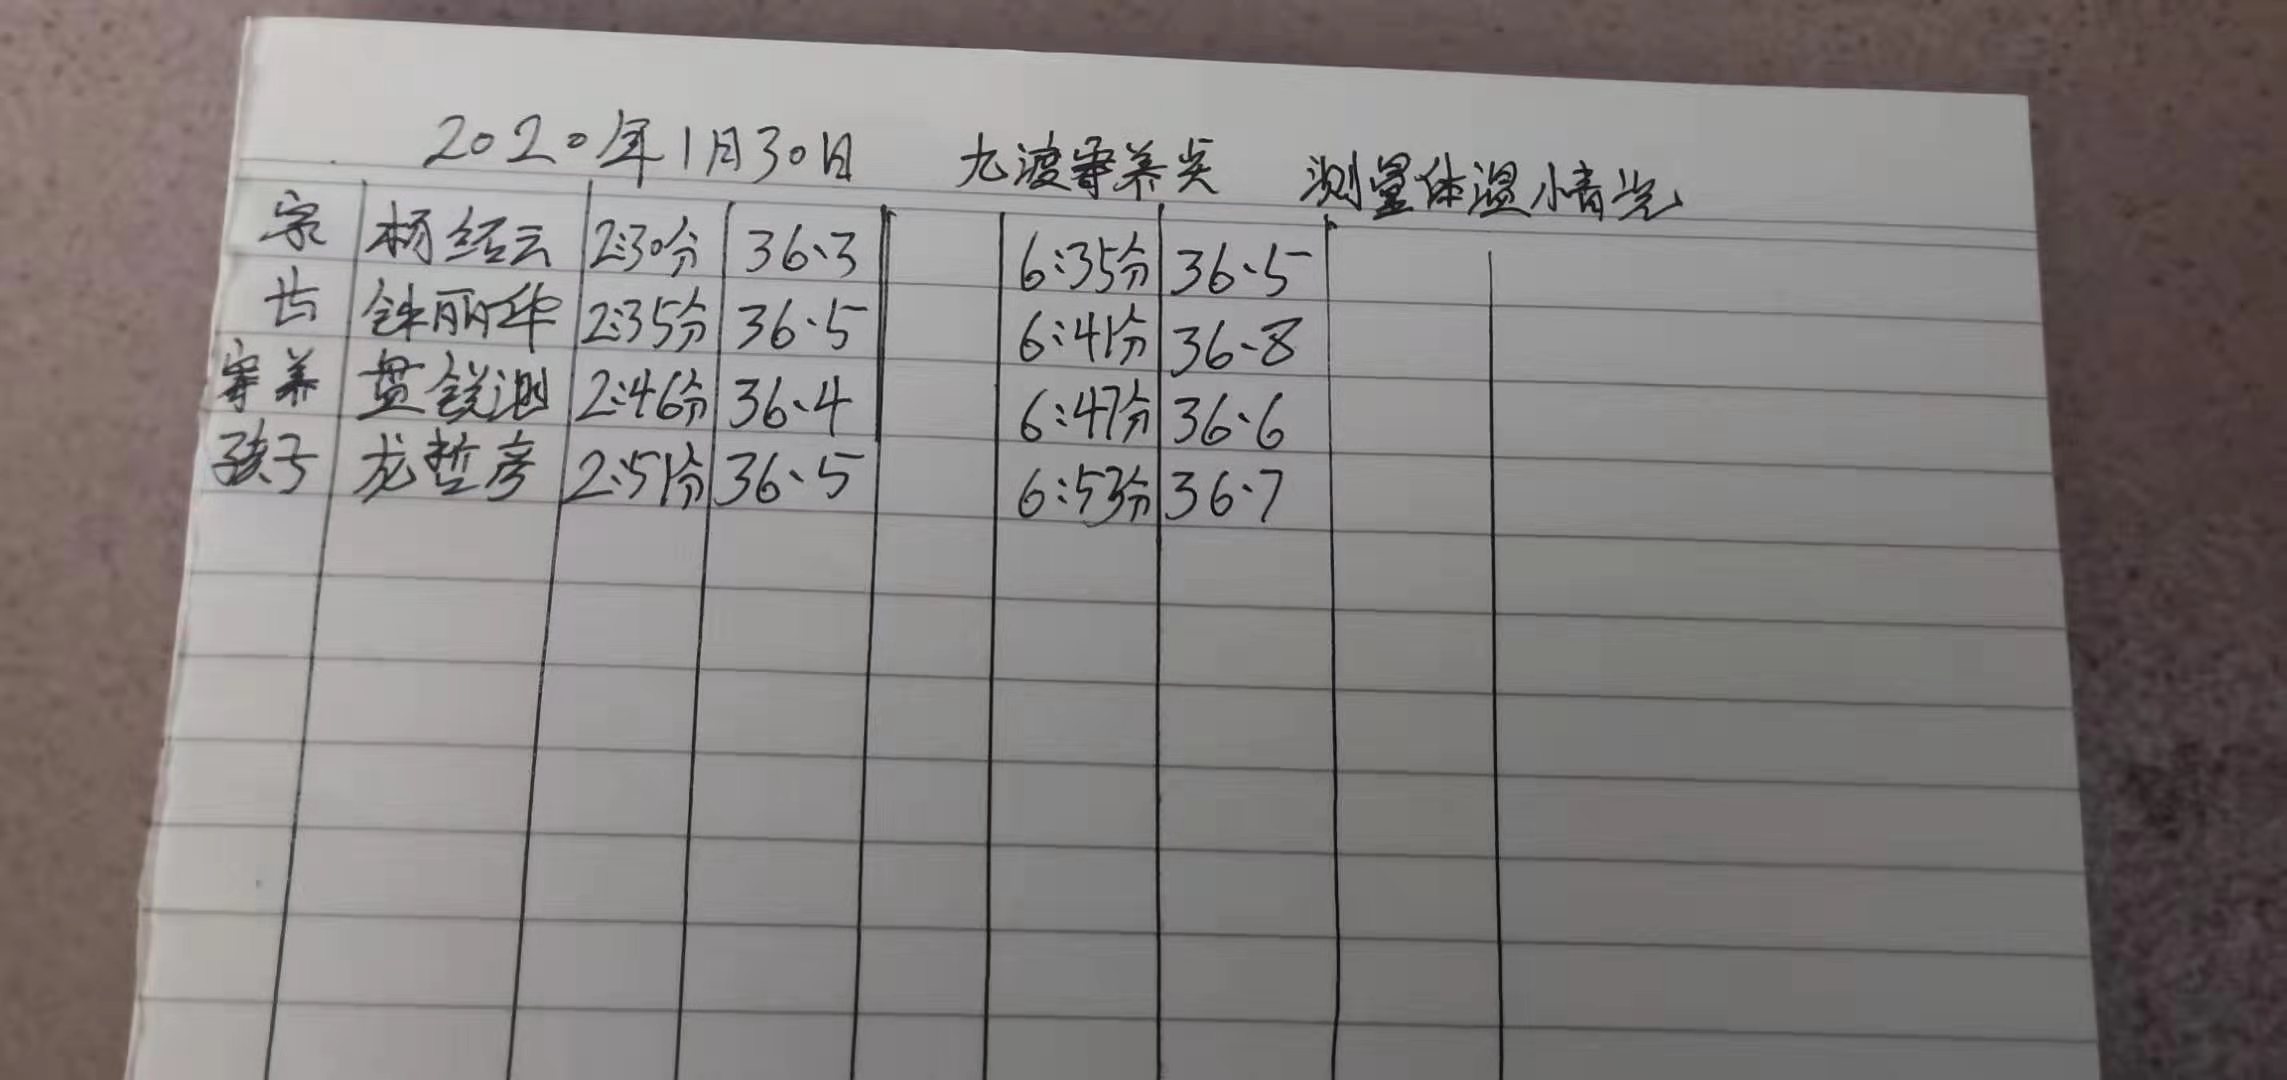 2020年1月30日 九渡寄养 测量体温情况
家 杨经云 2:30分 36.3 6:35分 36.5
长 钟丽华 2:35分 36.5 6:41分 36.8
寄养 盘 2:46分 36.4 6:47分 36.6
孩子 龙哲彦 2:51分 36.5 6:53分 36.7